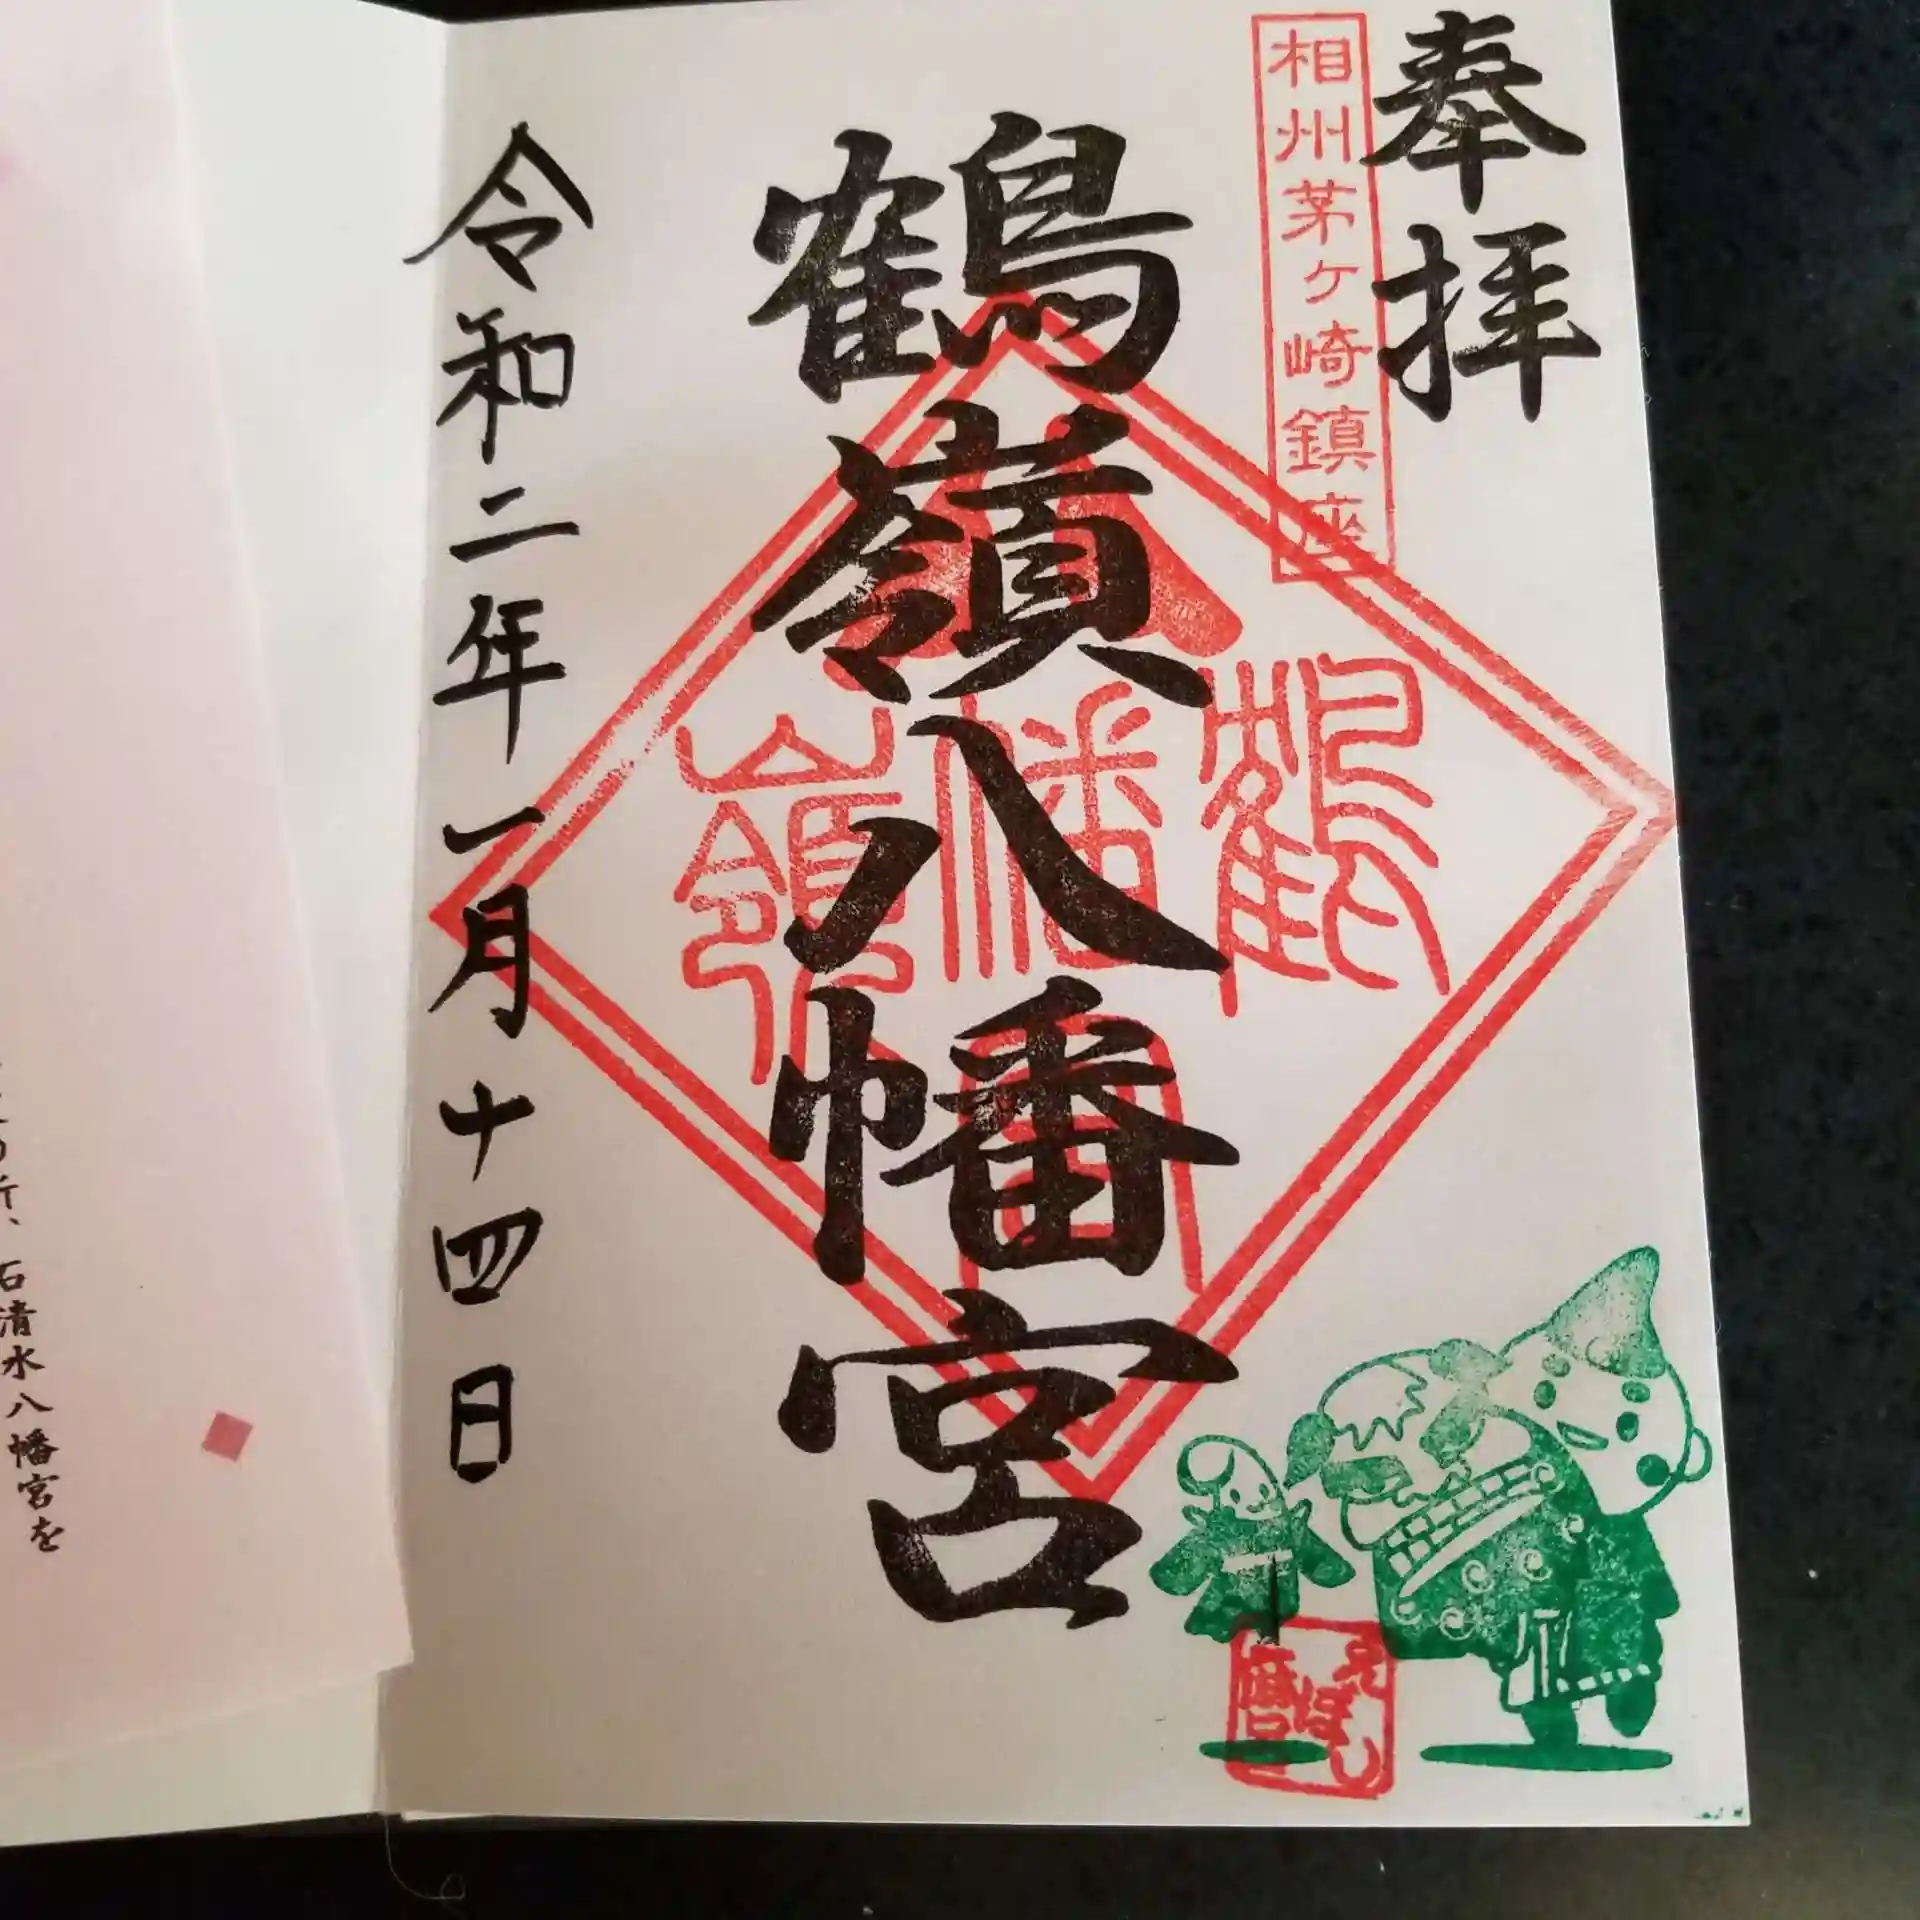 奉拝
相州茅ケ崎鎮座
鶴嶺八幡宮
鶴
幡
嶺
令和二年一月十四日
えぼし
麿
石清水八幡宮を